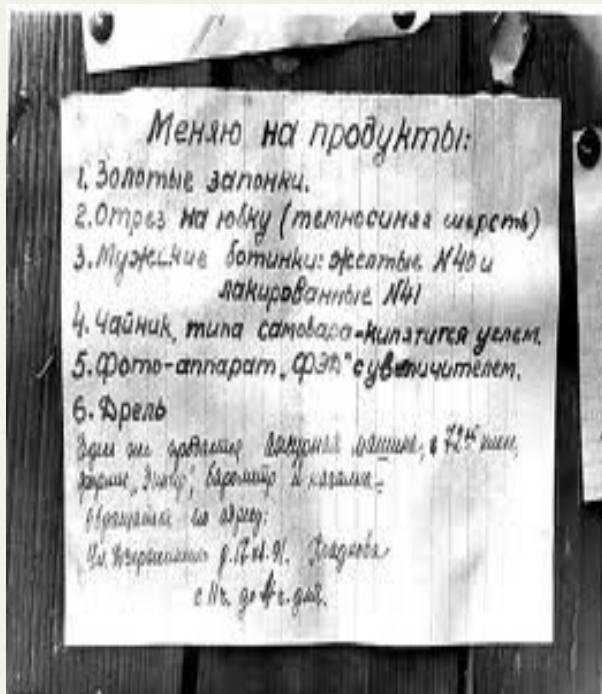 Меняю на продукты:
1. Золотые запонки.
2. Отрез на юбку (темносиняя шерсть)
3. Мужские ботинки: желтые N40 и
лакированные N41
4. Чайник, типа самовара-кипятится углем.
5. Фото-аппарат „ФЭД" с увеличителем.
6. Дрель
машина, в
барометр и
по адресу:
Ул. д. 12 кв. 91.
с 11 ч. до дня.